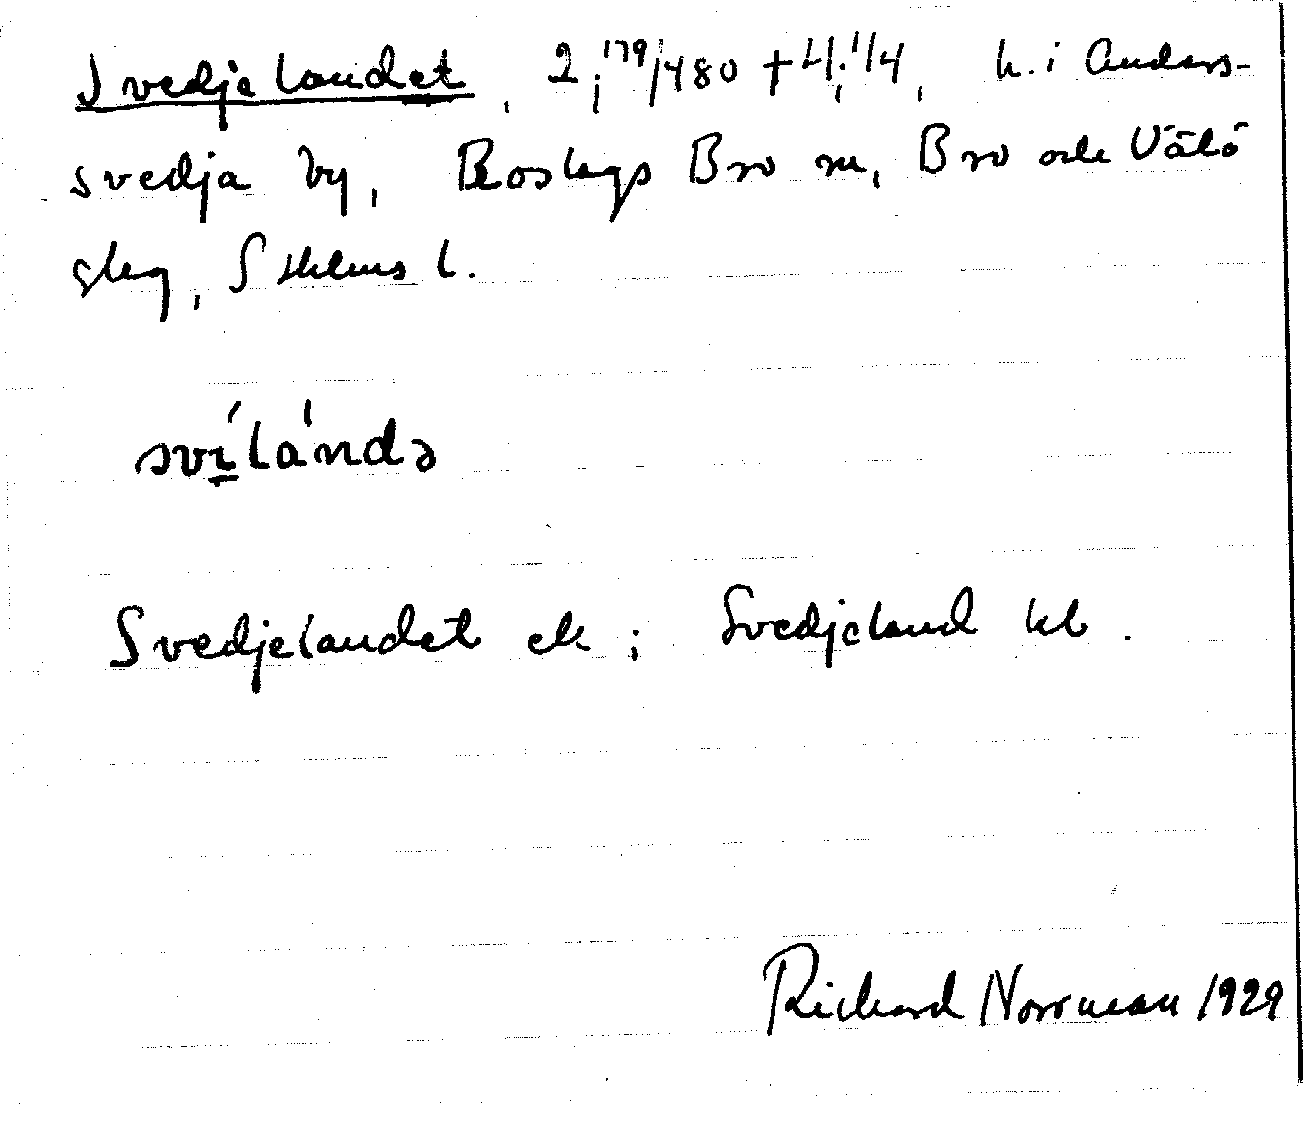 Svedjelandet, 2;179/480 + 4;1/4, h. i Anders-
svedja by, Roslags Bro sn, Bro och Vätö
slag, Sthlms l.
svi̱´la´ndə
Svedjelandet ek; Svedjeland kb.
Richard Norrman 1929